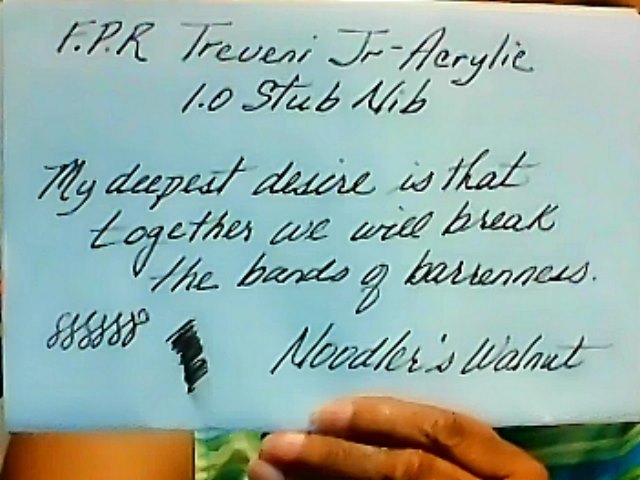 F.P.R Treveni Jr-Acrylic
1.0 Stub Nib
My deepest desire is that
together we will break
the bands of barrenness.
Noodler's Walnut